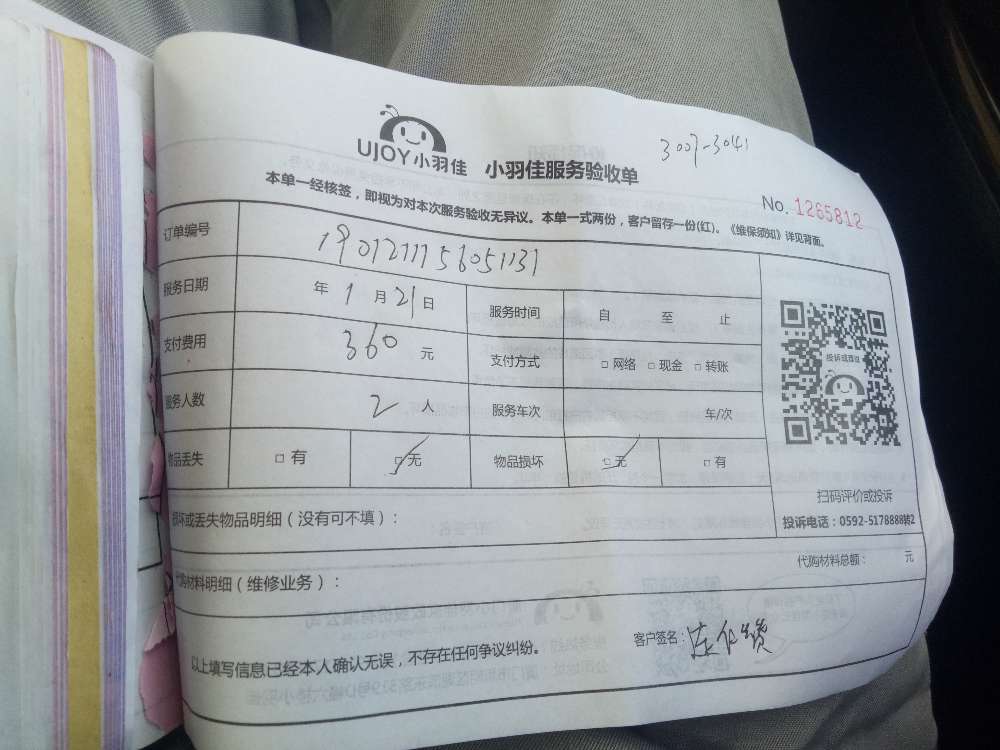 3007-3041
UJOY小羽佳 小羽佳服务验收单
No. 1265812
本单一经核签，即视为对本次服务验收无异议。本单一式两份，客户留存一份(红)。《维保须知》详见背面。
订单编号 19012111756051131
服务日期 年 1 月 21 日 服务时间 自 至 止
支付费用 360 元 支付方式 □ 网络 □ 现金 □ 转账
服务人数 2 人 服务车次 车/次
物品丢失 □ 有 □ 无 物品损坏 □ 无 □ 有
投诉或建议
扫码评价或投诉
投诉电话：0592-5178888转2
损坏或丢失物品明细（没有可不填）：
代购材料明细（维修业务）：
代购材料总额： 元
以上填写信息已经本人确认无误，不存在任何争议纠纷。
客户签名：